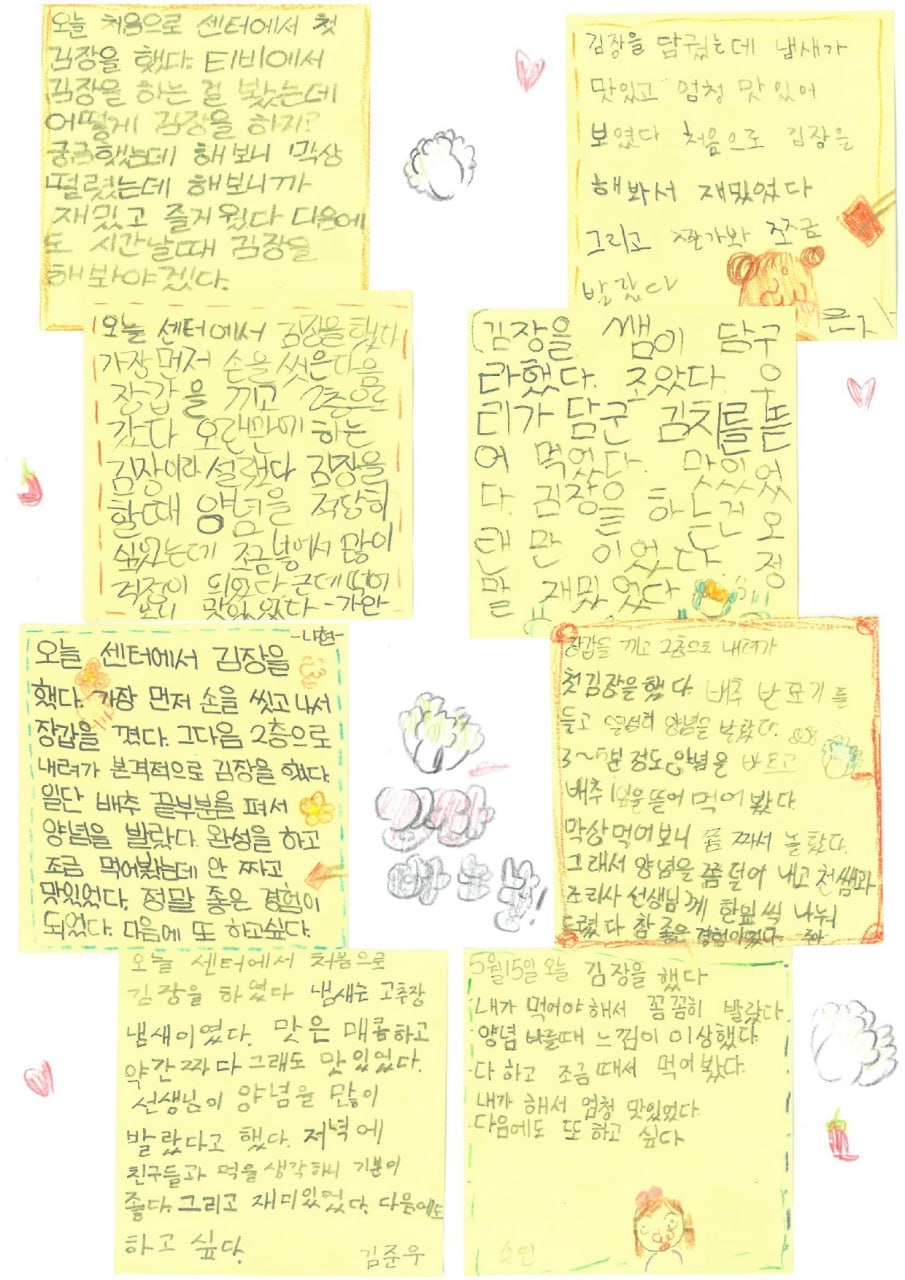 오늘 처음으로 센터에서 첫
김장을 했다. 티비에서
김장을 하는 걸 봤는데
어떻게 김장을 하지?
궁금했는데 해보니 막상
떨렸는데 해보니까
재밌고 즐거웠다 다음에
도 시간날때 김장을
해봐야겠다.
김장을 담궜는데 냄새가
맛있고 엄청 맛있어
보였다 처음으로 김장을
해봐서 재밌었다
그리고 짠가봐 쪼금
발랐다
오늘 센터에서 김장을 했다
가장 먼저 손을 씻은 다음
장갑을 끼고 2층으로
갔다 오랜만에 하는
김장이라 설렜다 김장을
할때 양념을 적당히
싶었는데 조금 넣어서 많이
걱정이 되었다 근데 먹어
보니 맛있었다 -가안
김장을 쌤이 담구
라했다. 조았다. 우
리가 담군 김치를 뜯
어 먹었다. 맛있었
다. 김장을 하는건 오
랜만 이었다 정
말 재밌었다
-나현-
오늘 센터에서 김장을
했다. 가장 먼저 손을 씻고 나서
장갑을 꼈다. 그다음 2층으로
내려가 본격적으로 김장을 했다.
일단 배추 끝부분을 펴서
양념을 발랐다. 완성을 하고
조금 먹어봤는데 안 짜고
맛있었다. 정말 좋은 경험이
되었다. 다음에 또 하고싶다.
장갑을 끼고 2층으로 내려가
첫 김장을 했다. 배추 반포기를
들고 열심히 양념을 발랐다.
3~5분 정도 양념을 바르고
배추 1잎을 뜯어 먹어 봤다.
막상 먹어보니 쫌 짜서 놀랐다.
그래서 양념을 쫌 덜어 내고 천쌤과
조리사 선생님께 한잎 씩 나눠
드렸다 참 좋은 경험이었다 -주아
오늘 센터에서 처음으로
김장을 하였다 냄새는 고추장
냄새이였다. 맛은 매콤하고
약간 짜다 그래도 맛있었다.
선생님이 양념을 많이
발랐다고 했다. 저녁에
친구들과 먹을 생각하니 기분이
좋다. 그리고 재미있었다. 다음에도
하고 싶다. 김준우
5월15일 오늘 김장을 했다
내가 먹어야 해서 꼼꼼히 발랐다.
양념 바를때 느낌이 이상했다.
다 하고 조금 때서 먹어봤다.
내가 해서 엄청 맛있었다.
다음에도 또 하고 싶다
수민